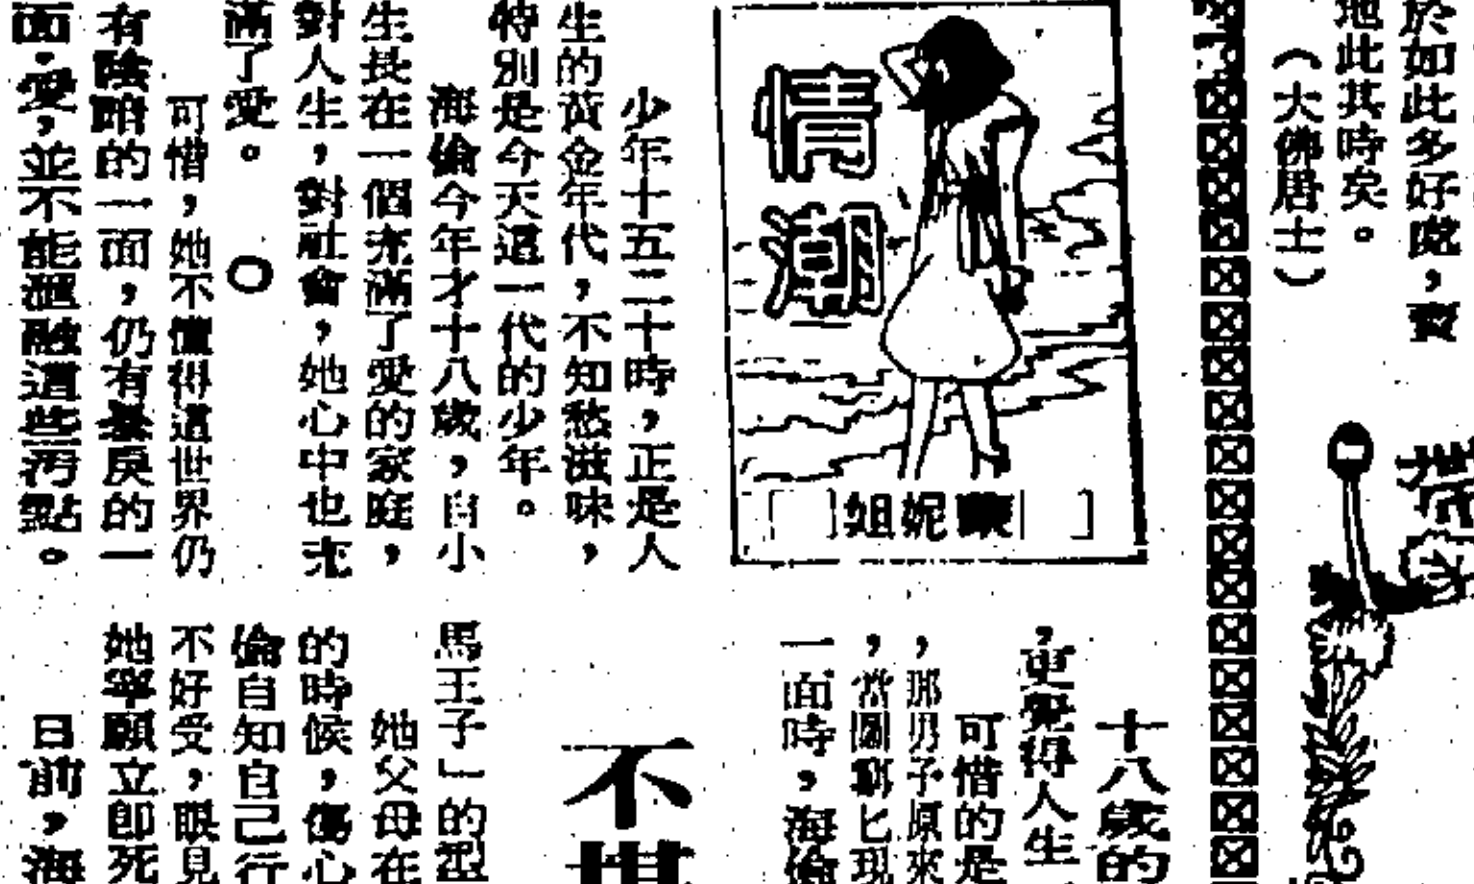 於如此多好處，賣
地此其時矣。
（大佛居士）
情潮
蒙妮姐
少年十五二十時，正是人
生的黃金年代，不知愁滋味，
特別是今天這一代的少年。
海倫今年才十八歲，自小
生長在一個充滿了愛的家庭，
對人生，對社會，她心中也充
滿了愛。
可惜，她不懂得這世界仍
有陰暗的一面，仍有暴戾的一
面，愛，並不能溫融這些污點。
十八歲的
，更覺得人生
可惜的是
，那男子原來
，當圖窮匕現
一面時，海倫
不
馬王子」的型
她父母在
的時候，傷心
倫自知自己行
不好受，眼見
她寧願立即死
日前，海